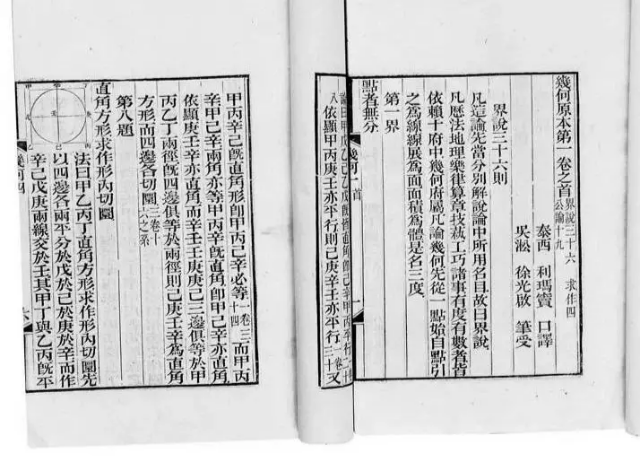 幾何原本第一卷之首 界說三十六 求作四 公論十九
泰西 利瑪竇 口譯
吳淞 徐光啟 筆受
界說三十六則
凡造論先當分別解說論中所用名目故曰界說
凡歷法地理樂律算章技藝工巧諸事有度有數者皆
依賴十府中幾何府屬凡論幾何先從一點始自點引
之為線線展為面面積為體是名三度
第一界
點者無分
幾何一首
依顯甲丙庚壬亦平行則己庚壬辛亦平行
甲丙辛己旣直角形卽甲丙己辛必等而甲丙
辛甲己辛兩角亦等甲丙辛旣直角卽甲己辛亦直角
依顯亦直角而辛壬壬庚庚己三邊俱等於甲
丙乙丁兩徑旣四邊俱等於兩徑則己庚壬辛為直角
方形而四邊各切圜 三卷十六之系
第八題
直角方形求作形內切圜
法曰甲乙丙丁直角方形求作形內切圜先
以四邊各兩平分於戊於己於庚於辛而作
辛己戊庚兩線交於壬其甲丁與乙丙旣平
幾何四